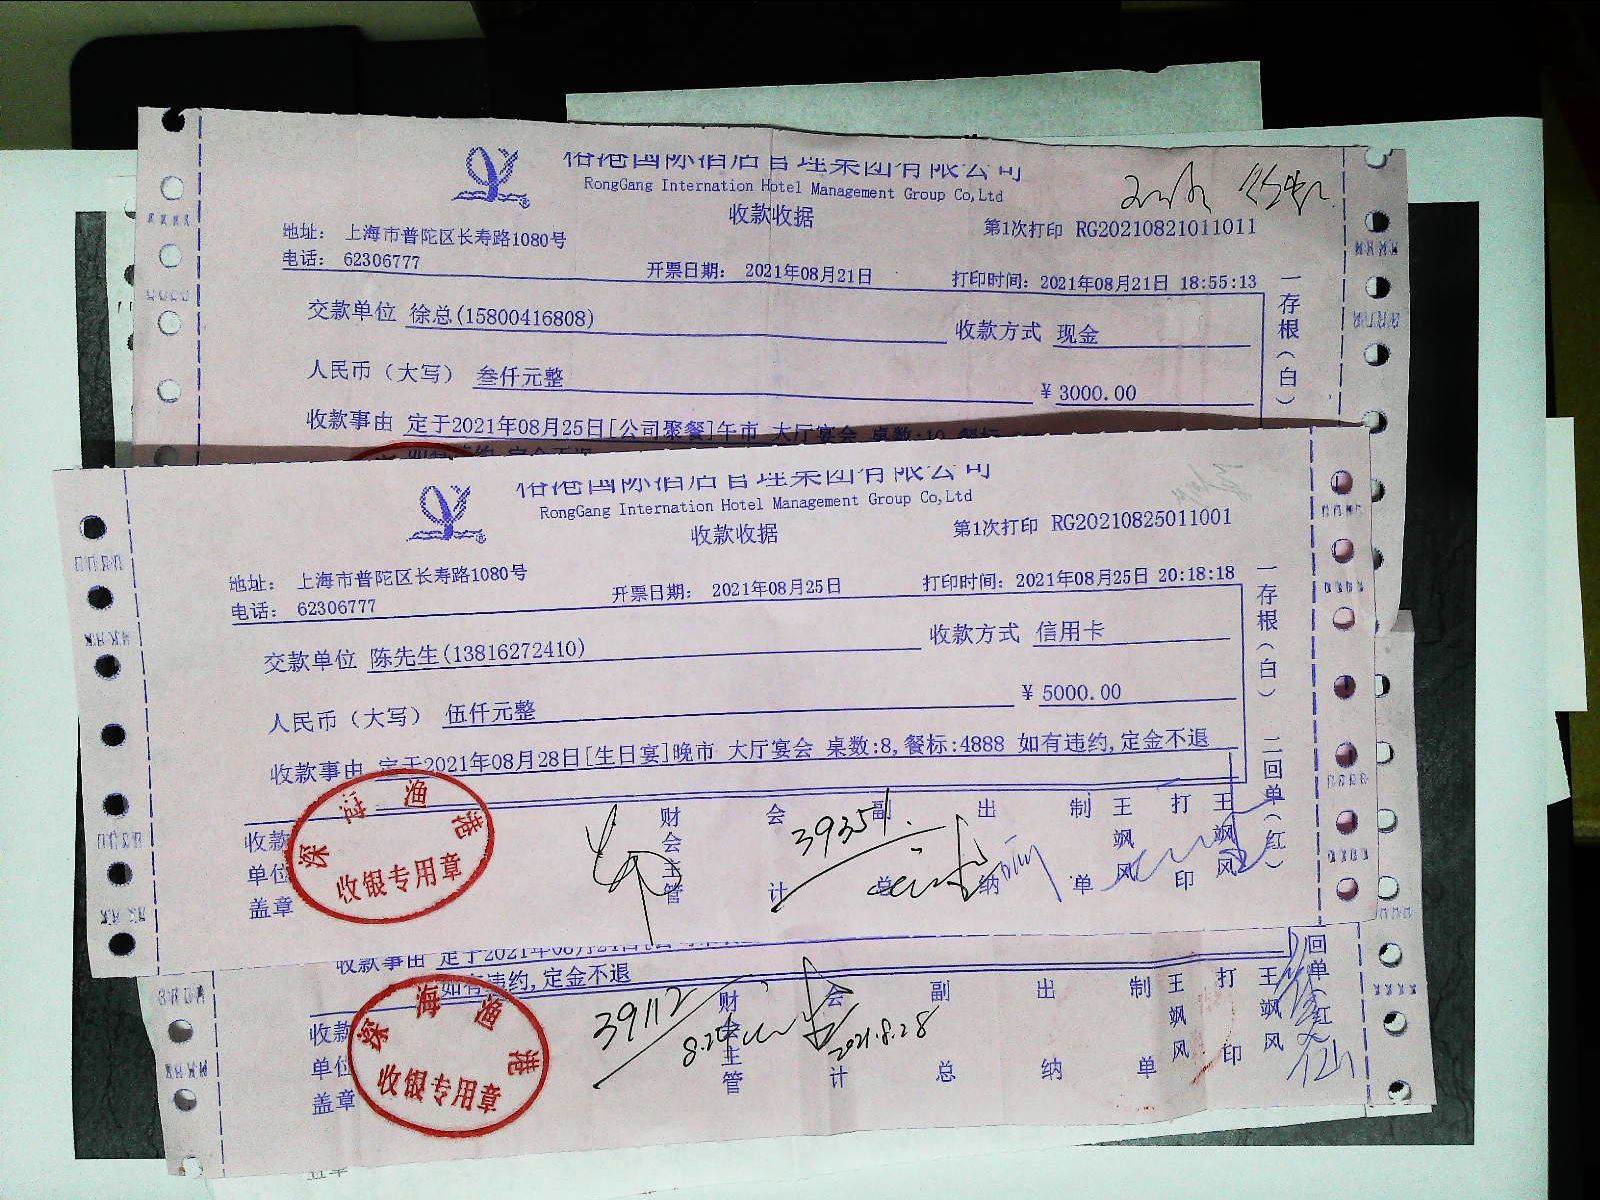 裕港国际酒店管理集团有限公司
RongGang Internation Hotel Management Group Co,Ltd
收款收据
第1次打印 RG20210821011011
地址： 上海市普陀区长寿路1080号
电话： 62306777
开票日期： 2021年08月21日
打印时间：2021年08月21日 18:55:13
交款单位 徐总(15800416808)
收款方式 现金
人民币（大写） 叁仟元整
￥3000.00
收款事由 定于2021年08月25日[公司聚餐]午市 大厅宴会 桌数:10 餐标
定金不退
一存根（白）
裕港国际酒店管理集团有限公司
RongGang Internation Hotel Management Group Co,Ltd
收款收据
第1次打印 RG20210825011001
地址： 上海市普陀区长寿路1080号
电话： 62306777
开票日期： 2021年08月25日
打印时间：2021年08月25日 20:18:18
交款单位 陈先生(13816272410)
收款方式 信用卡
人民币（大写） 伍仟元整
￥5000.00
收款事由 定于2021年08月28日[生日宴]晚市 大厅宴会 桌数:8,餐标:4888 如有违约,定金不退
一存根（白） 二回单（红）
收款单位盖章
深海渔港
收银专用章
财会主管
会计
副总
出纳
制单
王飒风
打印
王飒风
39351.
收款事由 定于2021年08月21日
如有违约,定金不退
回单（红
收款单位盖章
深海渔港
收银专用章
39112
财会主管
会计
副总
出纳
制单
王飒风
打印
王飒风
2021.8.28